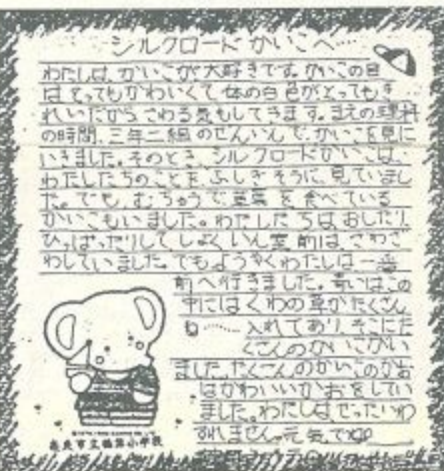 シルクロードかいこへ…
わたしは、かいこが大好きです。かいこの目
はとってもかわいくて体の白色がとってもき
れいだからさわる気もしてきます。まえの理科
の時間、三年二組のぜんいんで、かいこを見に
いきました。そのとき、シルクロードかいこは、
わたしたちのことを、ふしぎそうに、見ていまし
た。でも、むちゅうで葉を食べている
かいこもいました。わたしたちはおしたり
ひっぱったりしてしょくいん室前は、ざわざ
わしていました。でもようやくわたしは一番
前へ行きました。青いはこの
中にはくわの草がたくさん
入れてあり、そこにた
くさんのかいこがい
ました。たくさんのかいこのかお
はかわいいかおをしてい
ました。わたしはぜったいわ
すれません。元気でね
小学校